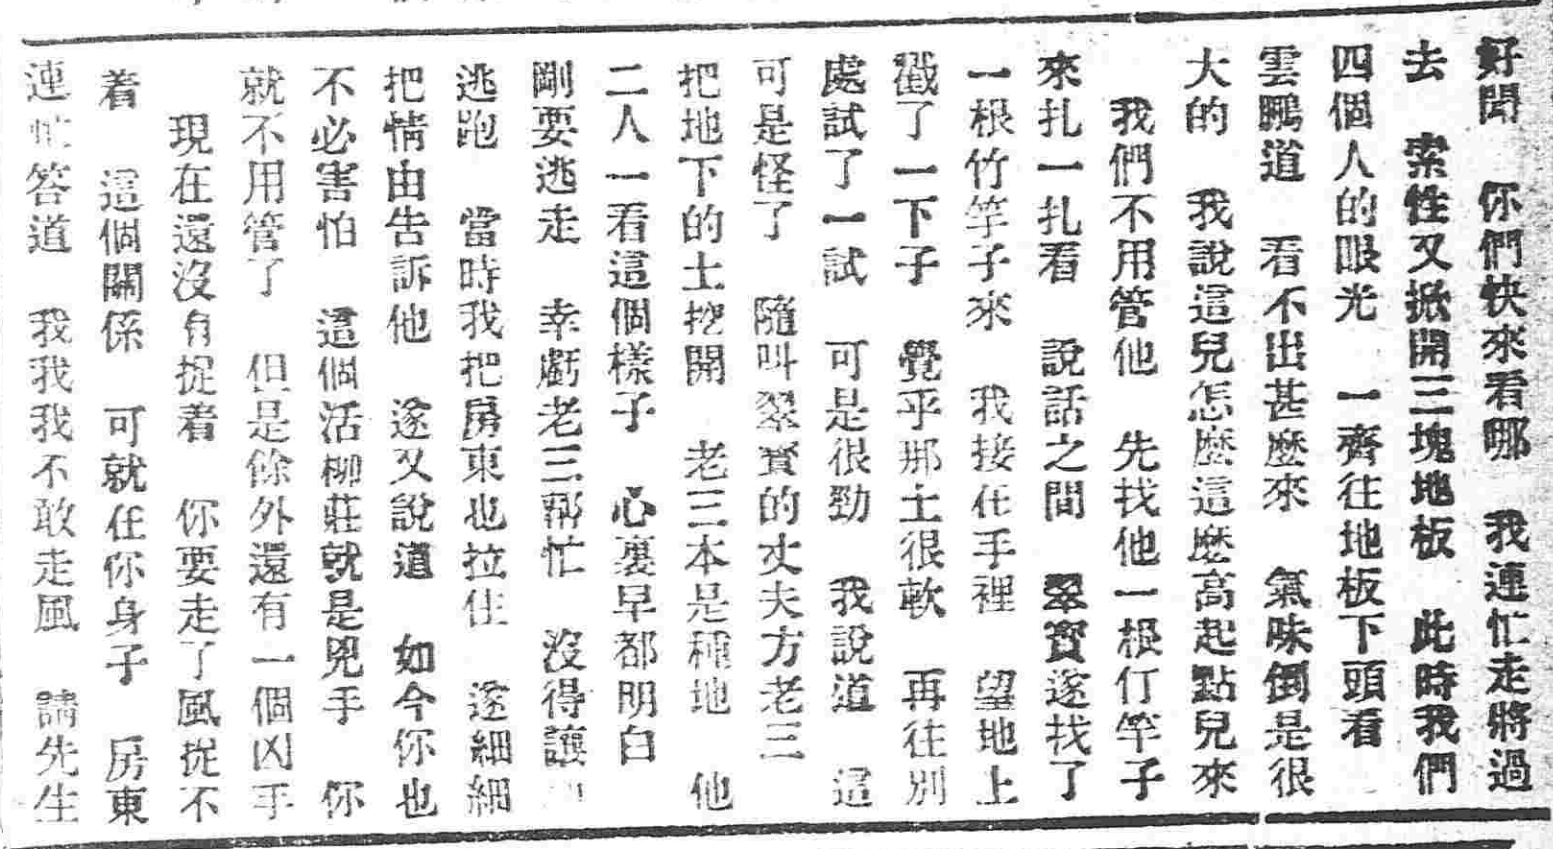 好聞　你們快來看哪　我連忙走將過
去　索性又掀開三塊地板　此時我們
四個人的眼光　一齊往地板下頭看
雲鵬道　看不出甚麽來　氣味倒是很
大的　我說這兒怎麽這麽高起點兒來
我們不用管他　先找他一根仃竿子
來扎一扎看　說話之間　翠寶遂找了
一根竹竿子來　我接在手裡　望地上
戳了一下子　覺乎那土很軟　再往別
處試了一試　可是很勁　我說道　這
可是怪了　隨叫翠寶的丈夫方老三
把地下的土挖開　老三本是種地　他
二人一看這個樣子　心裏早都明白
剛要逃走　幸虧老三幫忙　沒得讓
逃跑　當時我把房東也拉住　遂細細
把情由告訴他　遂又說道　如今你也
不必害怕　這個活柳莊就是兇手　你
就不用管了　但是餘外還有一個凶手
現在還沒有捉着　你要走了風捉不
着　這個關係　可就在你身子　房東
連忙答道　我我我不敢走風　請先生